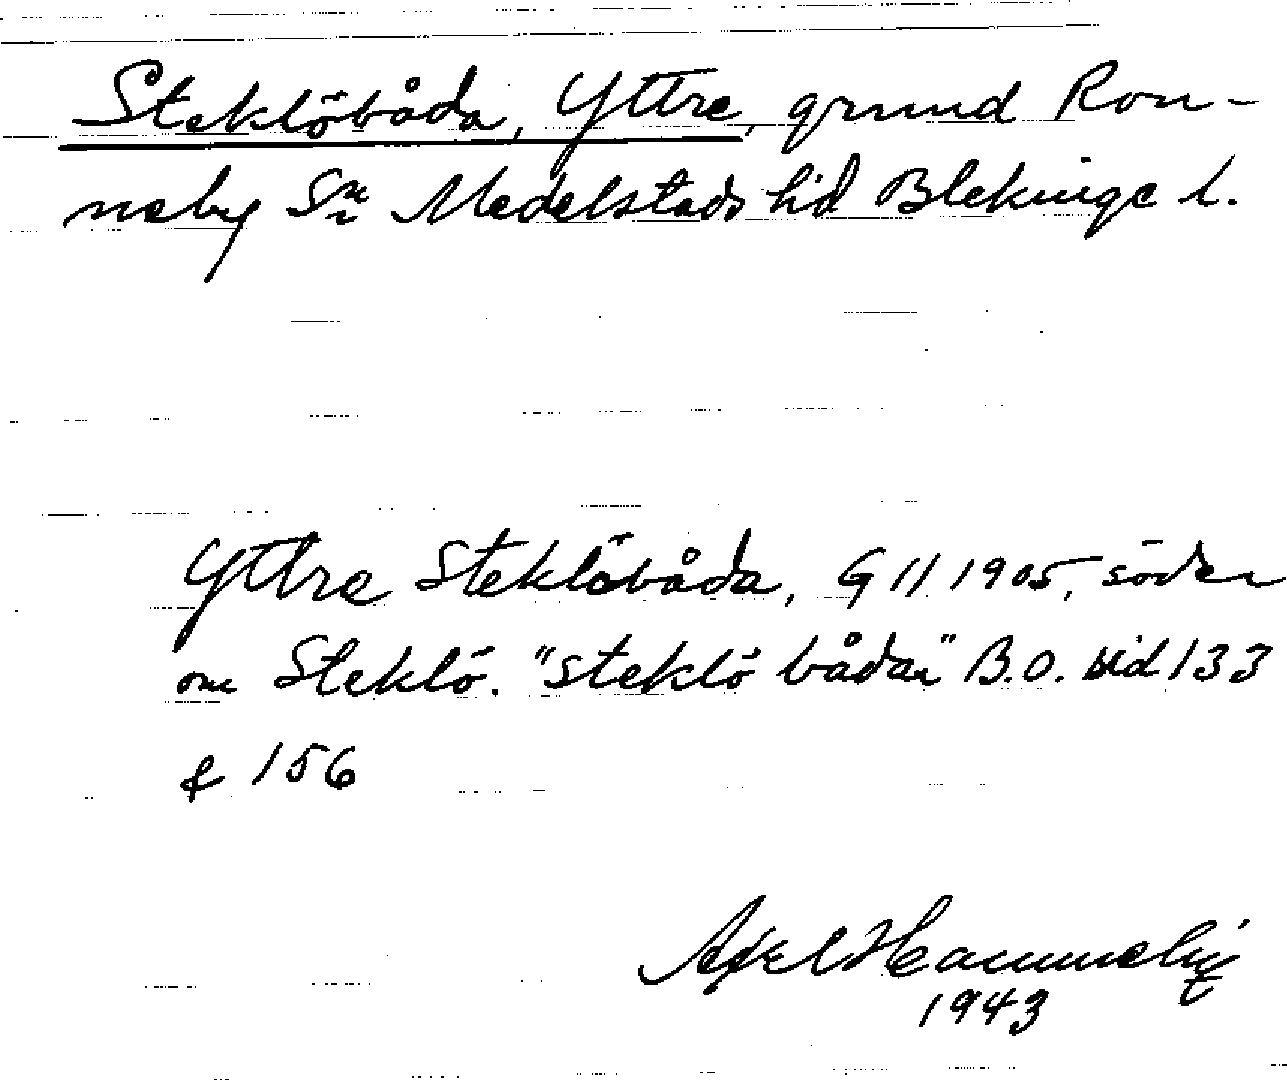 Steklöbåda, Yttre, grund Ron-
neby Sn Medelstads hd Blekinge l.
Yttre Steklöbåda, G 11 1905, söder
om Steklö. "Steklö bådar" B.O. sid 133
& 156
Axel
1943